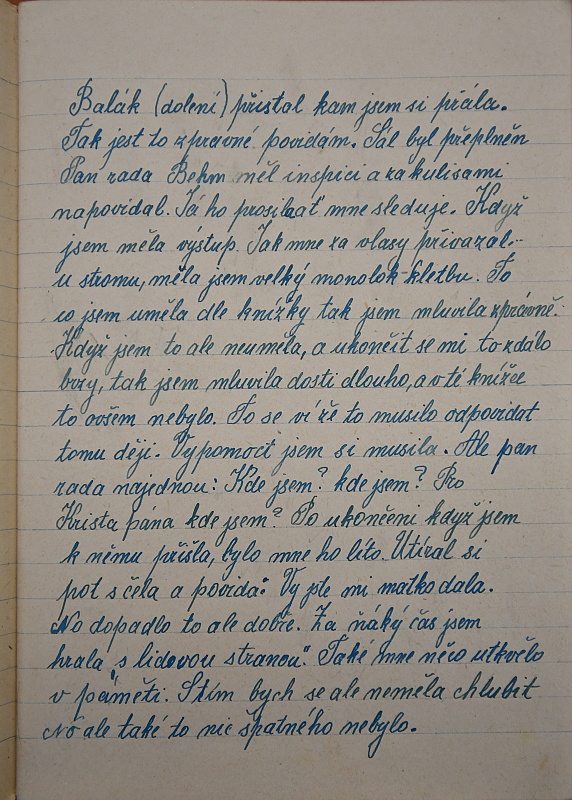 Balák (dolení) přistal kam jsem si přála.
Tak jest to zpravné povidám. Sál byl přeplněn
Pan rada Behm měl inspici a za kulisami
napovidal. Já ho prosila ať mne sleduje. Když
jsem měla výstup. Jak mne za vlasy přivazal..
u stromu, měla jsem velký monolok kletbu. To
co jsem uměla dle knížky tak jsem mluvila zprávně.
Když jsem to ale neuměla, a ukončit se mi to zdálo
brzy, tak jsem mluvila dosti dlouho, a v té knížce
to ovšem nebylo. To se ví že to musilo odpovidat
tomu ději. Vypomoct jsem si musila. Ale pan
rada najednou: Kde jsem? kde jsem? Pro
Krista pána kde jsem? Po ukončeni když jsem
k němu přišla, bylo mne ho líto. Utíral si
pot s čela a povida: Vy jste mi matko dala.
No dopadlo to ale dobře. Za ňáký čas jsem
hrala "s lidovou stranou". Také mne něco utkvělo
v paměti. S tím bych se ale neměla chlubit
No ale také to nic špatného nebylo.